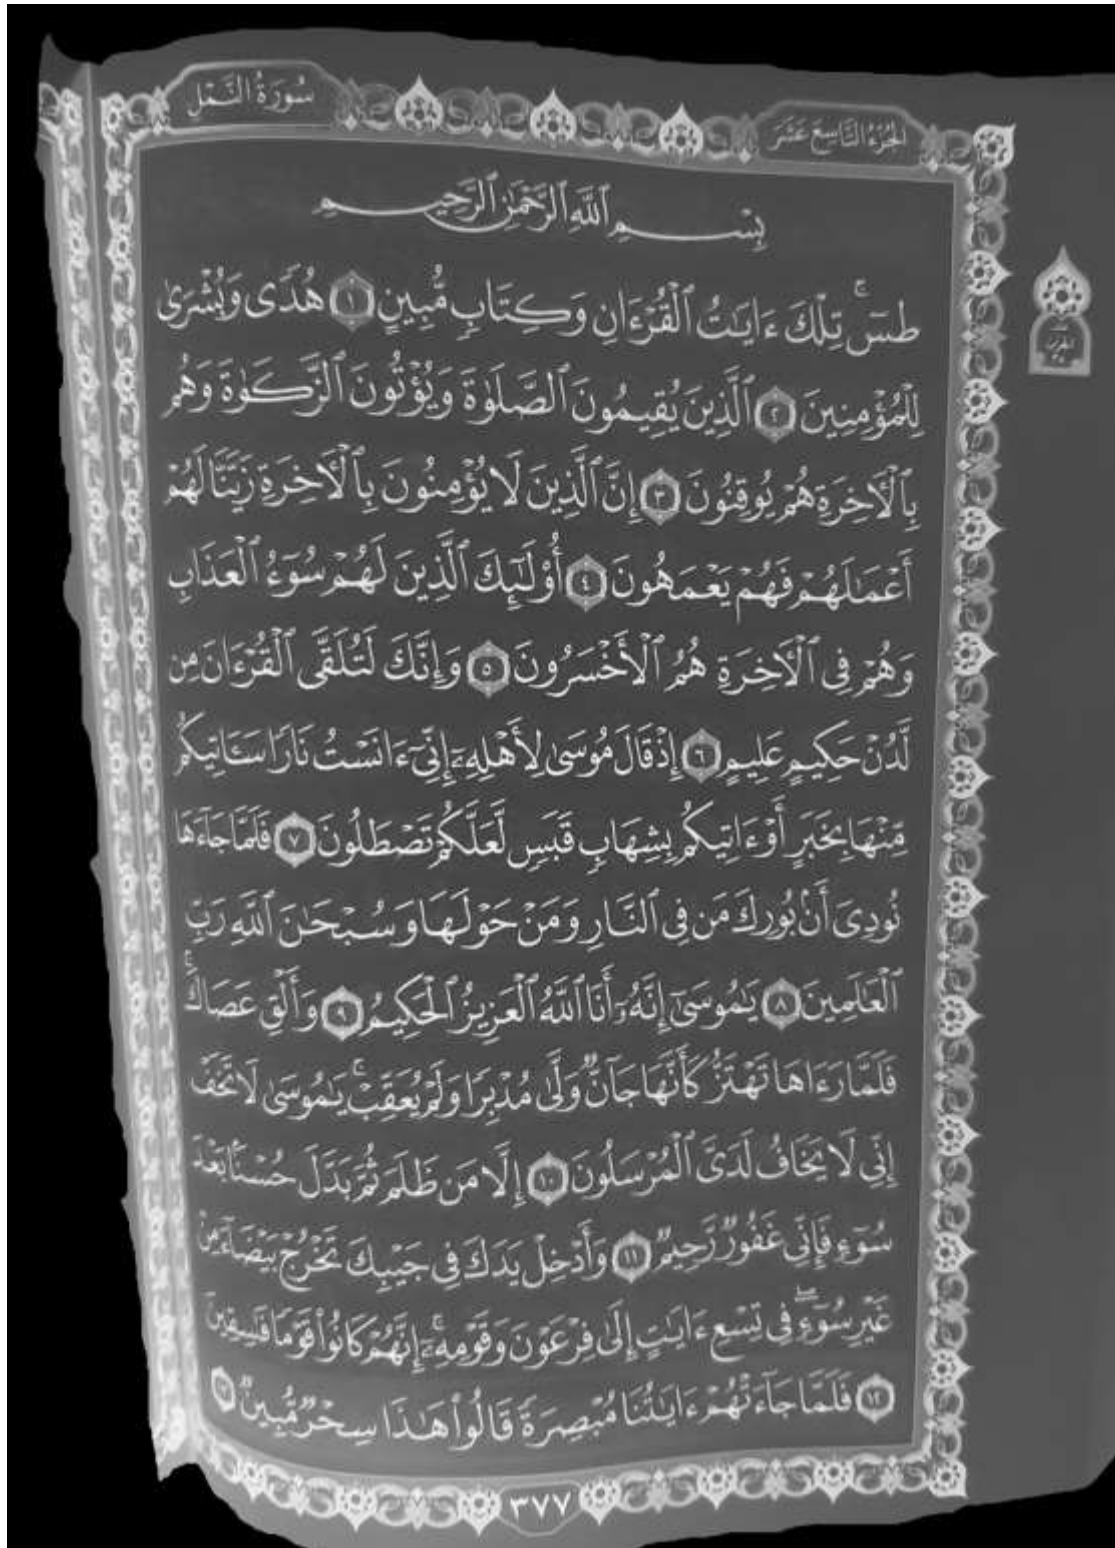 سُورَةُ النَّمْل
الجُزْءُ التَّاسِعَ عَشَرَ
بِسْمِ ٱللَّهِ ٱلرَّحْمَٰنِ ٱلرَّحِيمِ
طسٓۚ تِلْكَ ءَايَٰتُ ٱلْقُرْءَانِ وَكِتَابٖ مُّبِينٍ ١ هُدٗى وَبُشْرَىٰ
لِلْمُؤْمِنِينَ ٢ ٱلَّذِينَ يُقِيمُونَ ٱلصَّلَوٰةَ وَيُؤْتُونَ ٱلزَّكَوٰةَ وَهُم
بِٱلْأٓخِرَةِ هُمْ يُوقِنُونَ ٣ إِنَّ ٱلَّذِينَ لَا يُؤْمِنُونَ بِٱلْأٓخِرَةِ زَيَّنَّا لَهُمْ
أَعْمَٰلَهُمْ فَهُمْ يَعْمَهُونَ ٤ أُوْلَٰٓئِكَ ٱلَّذِينَ لَهُمْ سُوٓءُ ٱلْعَذَابِ
وَهُمْ فِي ٱلْأٓخِرَةِ هُمُ ٱلْأَخْسَرُونَ ٥ وَإِنَّكَ لَتُلَقَّى ٱلْقُرْءَانَ مِن
لَّدُنْ حَكِيمٍ عَلِيمٍ ٦ إِذْ قَالَ مُوسَىٰ لِأَهْلِهِۦٓ إِنِّيٓ ءَانَسْتُ نَارٗا سَـَٔاتِيكُم
مِّنْهَا بِخَبَرٍ أَوْ ءَاتِيكُم بِشِهَابٖ قَبَسٖ لَّعَلَّكُمْ تَصْطَلُونَ ٧ فَلَمَّا جَآءَهَا
نُودِيَ أَنۢ بُورِكَ مَن فِي ٱلنَّارِ وَمَنْ حَوْلَهَا وَسُبْحَٰنَ ٱللَّهِ رَبِّ
ٱلْعَٰلَمِينَ ٨ يَٰمُوسَىٰٓ إِنَّهُۥٓ أَنَا ٱللَّهُ ٱلْعَزِيزُ ٱلْحَكِيمُ ٩ وَأَلْقِ عَصَاكَۚ
فَلَمَّا رَءَاهَا تَهْتَزُّ كَأَنَّهَا جَآنّٞ وَلَّىٰ مُدْبِرٗا وَلَمْ يُعَقِّبْۚ يَٰمُوسَىٰ لَا تَخَفْ
إِنِّي لَا يَخَافُ لَدَيَّ ٱلْمُرْسَلُونَ ١٠ إِلَّا مَن ظَلَمَ ثُمَّ بَدَّلَ حُسْنَۢا بَعْدَ
سُوٓءٖ فَإِنِّي غَفُورٞ رَّحِيمٞ ١١ وَأَدْخِلْ يَدَكَ فِي جَيْبِكَ تَخْرُجْ بَيْضَآءَ مِنْ
غَيْرِ سُوٓءٖۖ فِي تِسْعِ ءَايَٰتٍ إِلَىٰ فِرْعَوْنَ وَقَوْمِهِۦٓۚ إِنَّهُمْ كَانُواْ قَوْمٗا فَٰسِقِينَ
١٢ فَلَمَّا جَآءَتْهُمْ ءَايَٰتُنَا مُبْصِرَةٗ قَالُواْ هَٰذَا سِحْرٞ مُّبِينٞ ١٣
٣٧٧